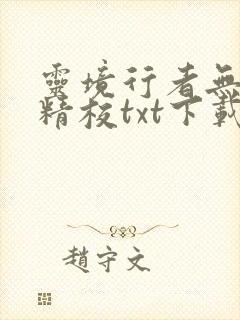 靈境行者無
精校txt下載
趙守文